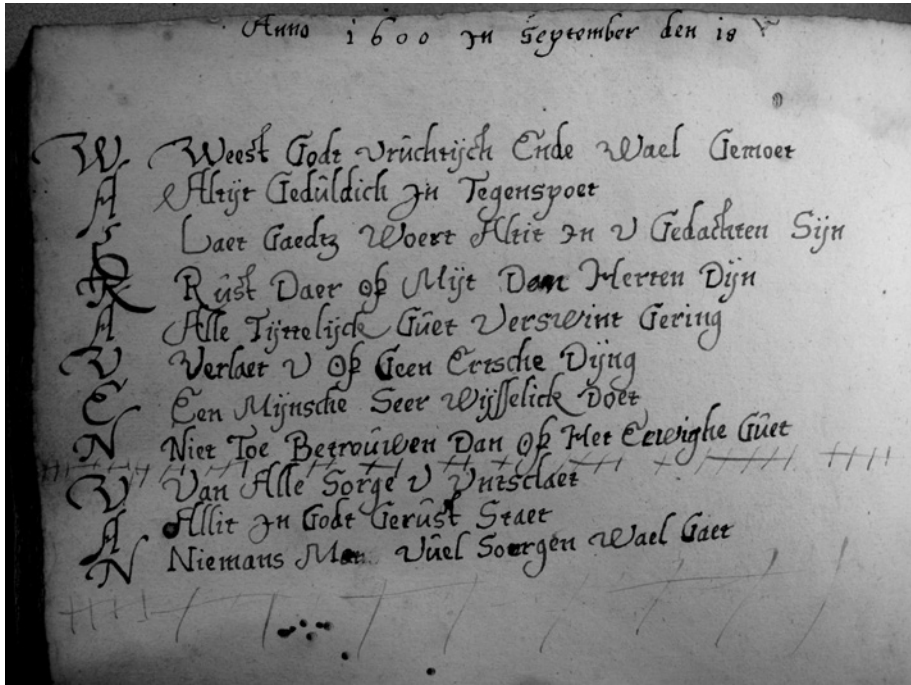 Anno 1600 Jn September den 18
W Weest Godt vrûchtijch Ende Wael Gemoet
A Altijt Gedûldich Jn Tegenspoet
L Laet Gaedtz Woert Altit Jn V Gedachten Sijn
R Rûst Daer Op Mijt Dem Herten Dijn
A Alle Tijttelijck Gûet Verswint Gering
V Verlaet V Op Geen Ertsche Dijng
E Een Mijnsche Seer Wijsselick Doet
N Niet Toe Betroûwen Dan Op Het Eewighe Gûet
V Van Alle Sorge V Vntsclaet
A Allit Jn Godt Gerûst Staet
N Niemans Vûel Soergen Wael Gaet